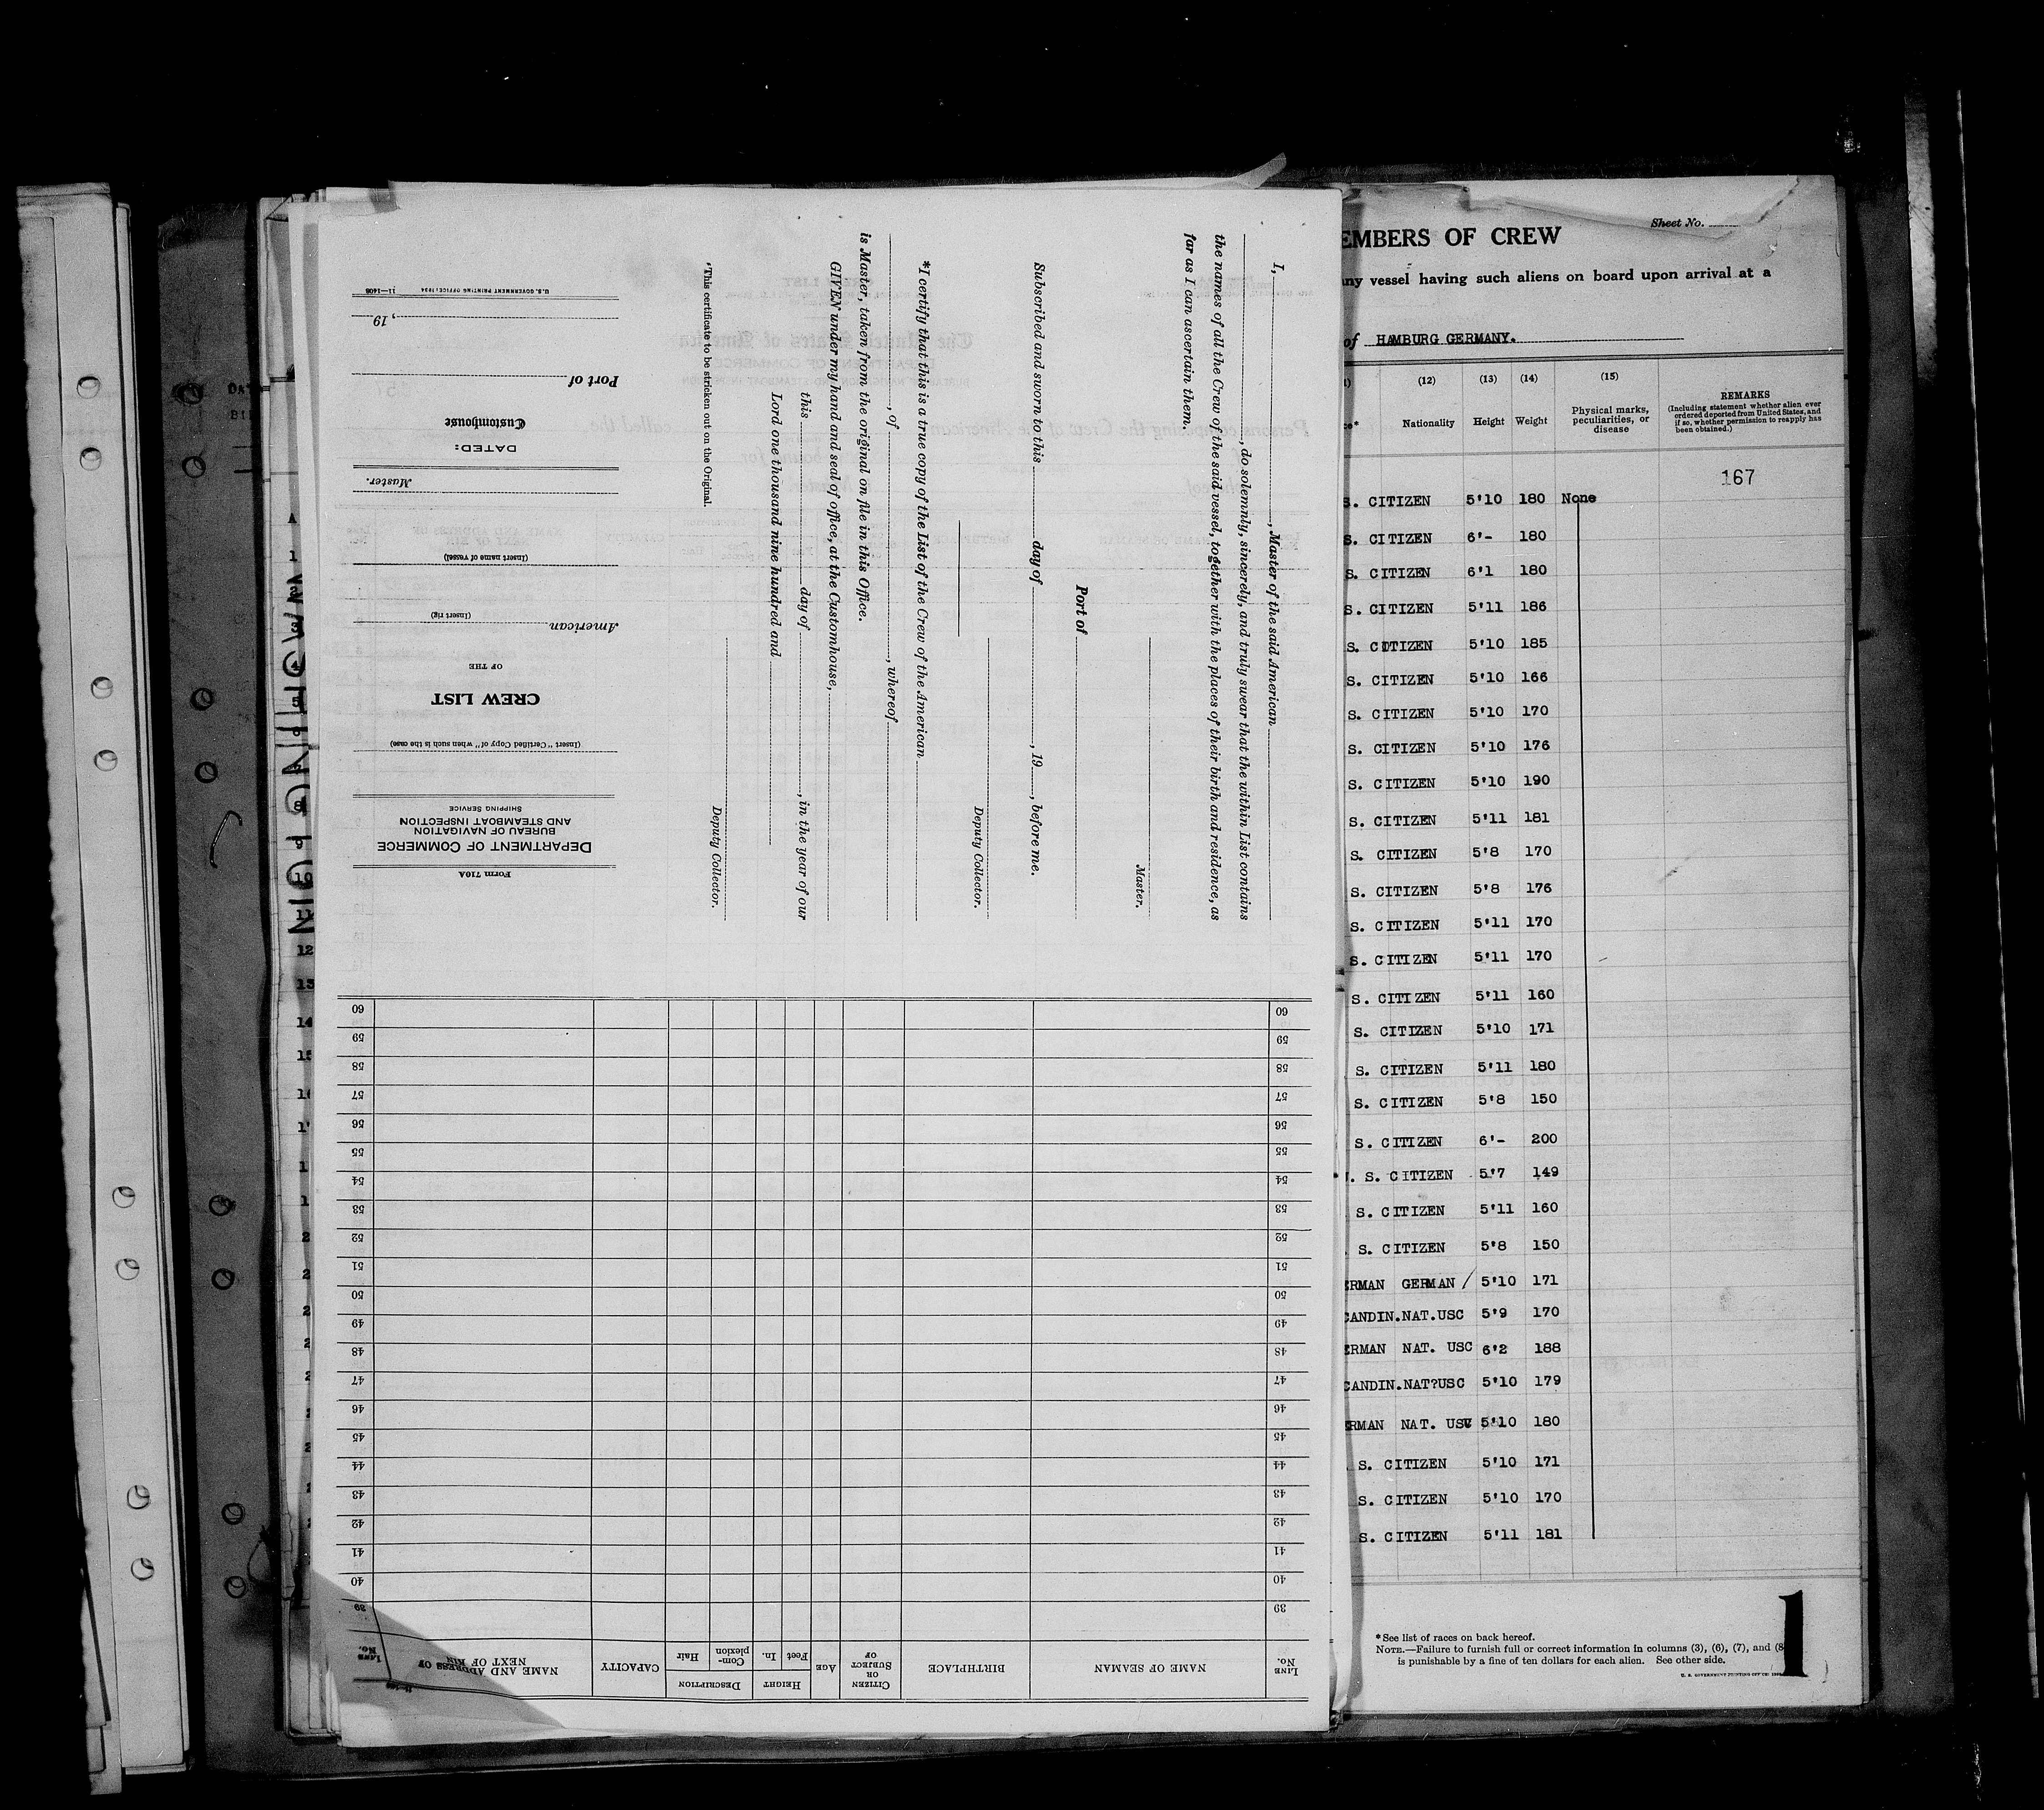 I, , Master of the said American
, do solemnly, sincerely, and truly swear that the within List contains
the names of all the Crew of the said vessel, together with the places of their birth and residence, as
far as I can ascertain them.
Master.
Port of
Subscribed and sworn to this day of , 19 , before me.
Deputy Collector.
*I certify that this is a true copy of the List of the Crew of the American
, of , whereof
is Master, taken from the original on file in this Office.
GIVEN under my hand and seal of office, at the Customhouse,
this day of , in the year of our
Lord one thousand nine hundred and
Deputy Collector.
*This certificate to be stricken out on the Original.
Form 710A
DEPARTMENT OF COMMERCE
BUREAU OF NAVIGATION
AND STEAMBOAT INSPECTION
SHIPPING SERVICE
(Insert "Certified Copy of" when such is the case)
CREW LIST
OF THE
American
(Insert rig)
(Insert name of vessel)
Master.
DATED:
Customhouse
Port of
, 19
U.S. GOVERNMENT PRINTING OFFICE: 1934 11—1408
LINE No. NAME OF SEAMAN BIRTHPLACE CITIZEN OR SUBJECT OF AGE HEIGHT Feet In. DESCRIPTION Complexion Hair CAPACITY NAME AND ADDRESS OF NEXT OF KIN LINE No.
39 39
40 40
41 41
42 42
43 43
44 44
45 45
46 46
47 47
48 48
49 49
50 50
51 51
52 52
53 53
54 54
55 55
56 56
57 57
58 58
59 59
60 60
Sheet No.
EMBERS OF CREW
any vessel having such aliens on board upon arrival at a
of HAMBURG GERMANY.
(12) (13) (14) (15)
Nationality Height Weight Physical marks, peculiarities, or disease
REMARKS
(Including statement whether alien ever
ordered deported from United States, and
if so, whether permission to reapply has
been obtained.)
167
S. CITIZEN 5'10 180 None
S. CITIZEN 6'- 180
S. CITIZEN 6'1 180
S. CITIZEN 5'11 186
S. CITIZEN 5'10 185
S. CITIZEN 5'10 166
S. CITIZEN 5'10 170
S. CITIZEN 5'10 176
S. CITIZEN 5'10 190
S. CITIZEN 5'11 181
S. CITIZEN 5'8 170
S. CITIZEN 5'8 176
S. CITIZEN 5'11 170
S. CITIZEN 5'11 170
S. CITIZEN 5'11 160
S. CITIZEN 5'10 171
S. CITIZEN 5'11 180
S. CITIZEN 5'8 150
S. CITIZEN 6'- 200
. S. CITIZEN 5'7 149
S. CITIZEN 5'11 160
S. CITIZEN 5'8 150
ERMAN GERMAN / 5'10 171
CANDIN.NAT.USC 5'9 170
ERMAN NAT. USC 6'2 188
CANDIN.NAT?USC 5'10 179
ERMAN NAT. USC 5'10 180
S. CITIZEN 5'10 171
S. CITIZEN 5'10 170
S. CITIZEN 5'11 181
*See list of races on back hereof.
NOTE.—Failure to furnish full or correct information in columns (3), (6), (7), and (8
is punishable by a fine of ten dollars for each alien. See other side.
1